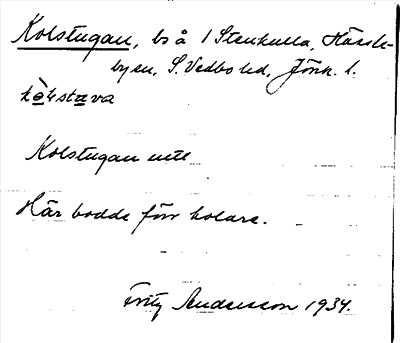 Kolstugan, bs å 1 Stenkulla, Hässle-
byen, S. Vedbo hd, Jönk. l.
kòlstava
Kolstugan
Här bodde förr kolare.
Fritz Andersson 1934.